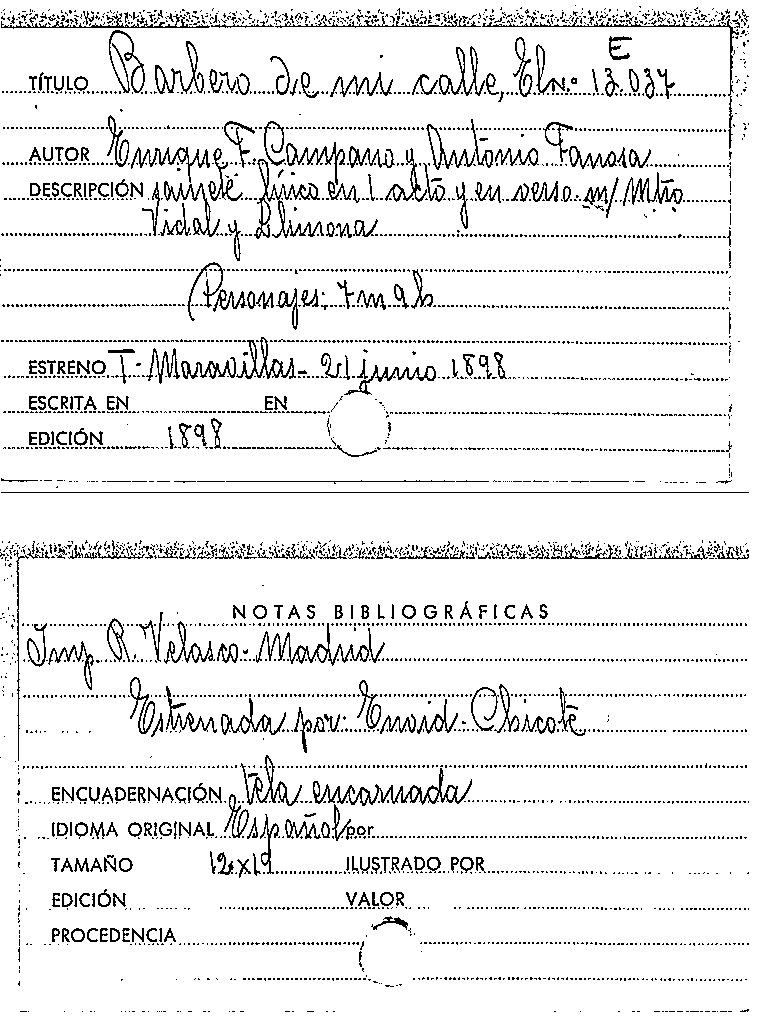 E
TÍTULO Barbero de mi calle, El n.º 13.037
AUTOR Enrique F. Campano y Antonio Fanosa
DESCRIPCIÓN sainete lírico en 1 acto y en verso. m/ Mtro
Vidal y Llimona
Personajes: 7m 9h
ESTRENO T. Maravillas - 21 junio 1898
ESCRITA EN EN
EDICIÓN 1898
NOTAS BIBLIOGRÁFICAS
Imp. R. Velasco - Madrid
Estrenada por: Chicote
ENCUADERNACIÓN tela encarnada
IDIOMA ORIGINAL Español por
TAMAÑO 12x19 ILUSTRADO POR
EDICIÓN VALOR
PROCEDENCIA